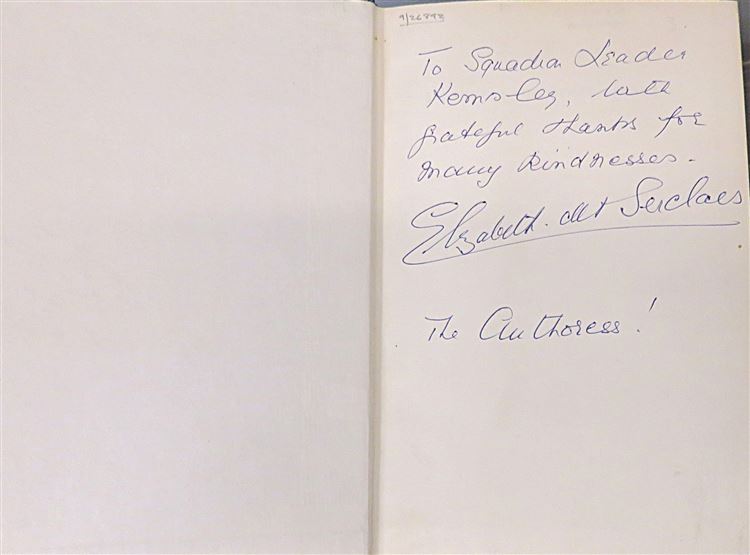 9/26893
To Squadron Leader
Kemsley, with
grateful thanks for
many kindnesses.
Elizabeth. de T Serclaes
The Authoress!